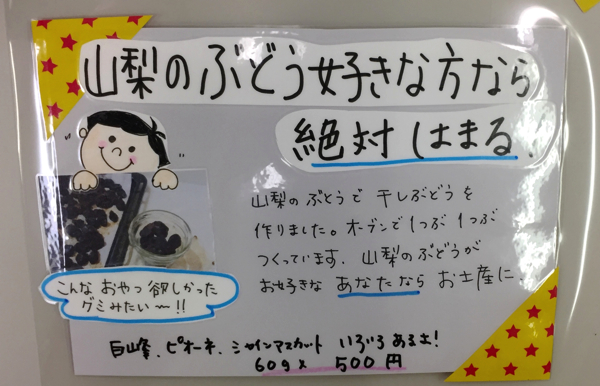 山梨のぶどう好きな方なら
絶対はまる
山梨のぶどうで干しぶどうを
作りました。オーブンで1つぶ1つぶ
つくっています。山梨のぶどうが
お好きなあなたならお土産に。
こんなおやつ欲しかった
グミみたい〜!!
巨峰、ピオーネ、シャインマスカットいろいろあるよ!
60g× 500円